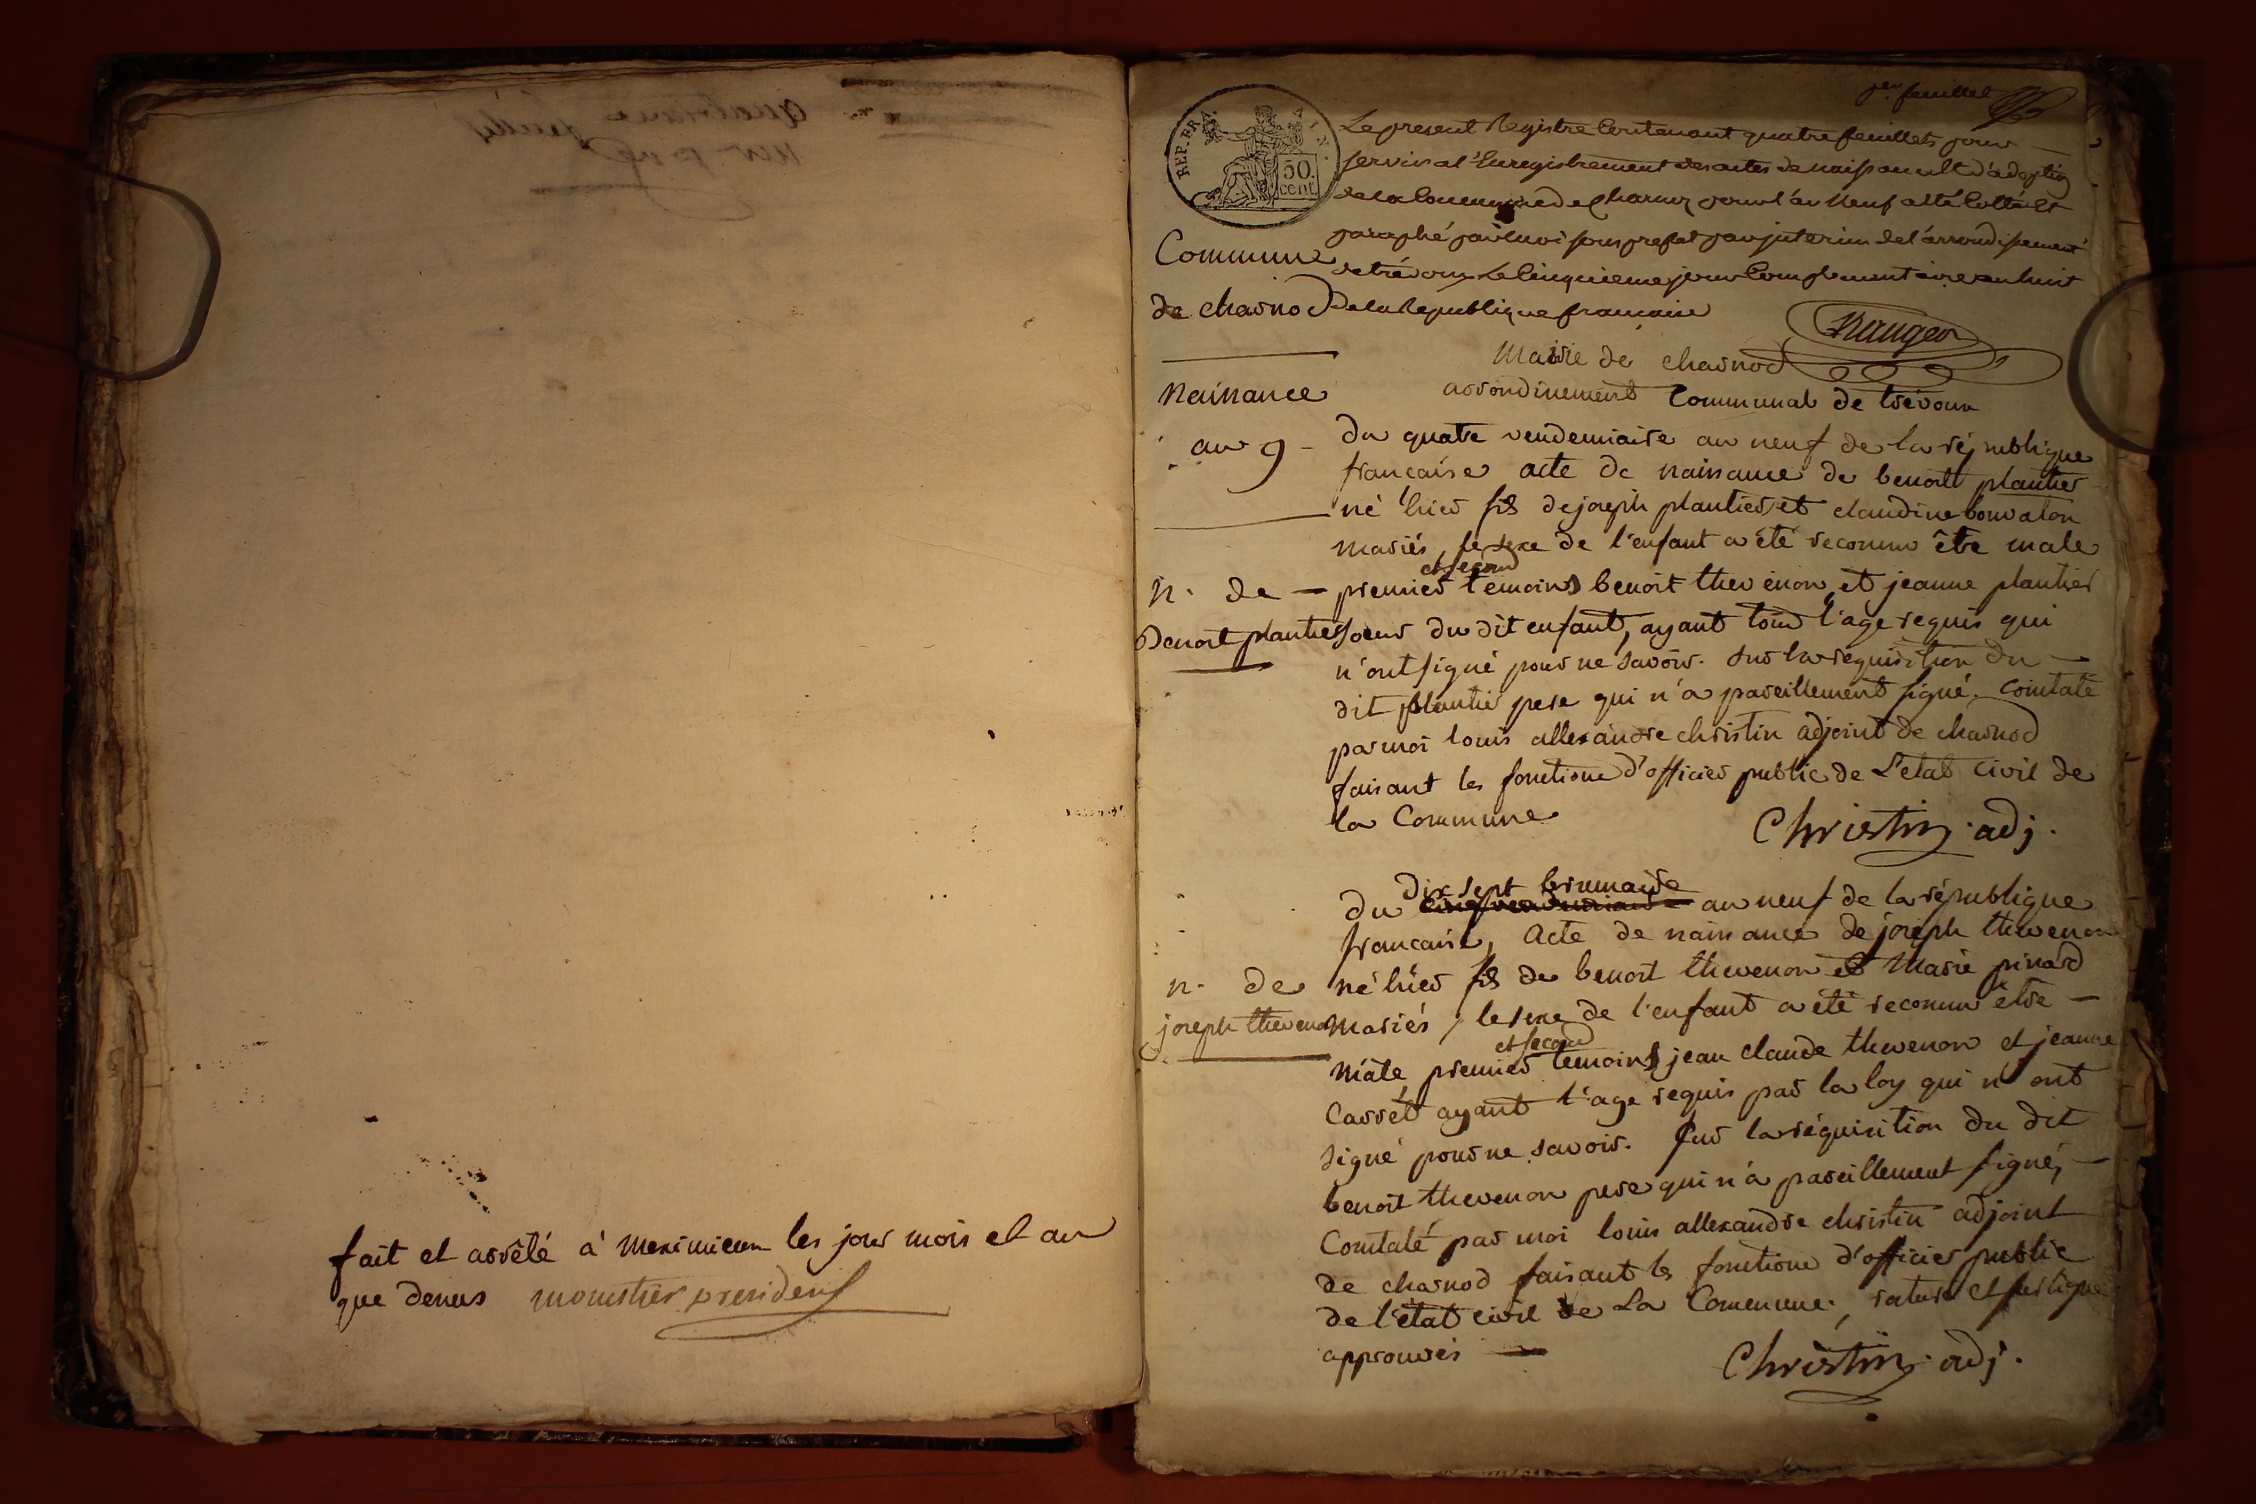 fait et arrêté à meximieux les jour mois et an
que denus monstier president
1er feuillet
REP. FRA.
50.
cent.
Le present Registre Contenant quatre feuillets pour
servir a l'Enregistrement des actes de naissance et d'adoption
de la Commune de Charnoz pour l'an Neuf a été Cotté et
paraphé par moi sous prefet par interim de l'arrondissement
de trévoux Le Cinquieme jour Complementaire an huit
de la Republique francaise
Commune
de charnod
Mairie de charnod
arrondissement Communal de trévoux
Naissance
an 9
du quatre vendemiaire an neuf de la république
francaise acte de naissance de benoitt plantier
né hier fils de joseph plantier et claudine bonvalon
mariés, le sexe de l'enfant a été reconnu être male
et second
premier temoins benoit thevenon et jeanne plantier
soeur du dit enfant, ayant tous l'age requis qui
n'ont signé pour ne savoir. sur la requisition du
dit plantier pere qui n'a pareillement signé. Contaté
par moi louis allexandre christin adjoint de charnod
faisant les fonctions d'officier public de L'etat civil de
la Commune
Christin adj.
n. de
Benoit plantier
dix sept brumaire
du cinq vendemiaire an neuf de la république
francaise, Acte de naissance de joseph thevenon
né hier fils de benoit thevenon et Marie pinard
mariés, le sexe de l'enfant a été reconnu être
et second
mâle, premier temoins jean claude thevenon et jeanne
Carrét ayant l'age requis par la loy qui n'ont
signé pour ne savoir. sur la réquisition du dit
benoit thevenon pere qui n'a pareillement signé,
Contaté par moi louis allexandre christin adjoint
de charnod faisant les fonctions d'officier public
de l'état civil de La Commune, rature et surligne
approuvés
Christin adj.
n. de
joseph thevenon